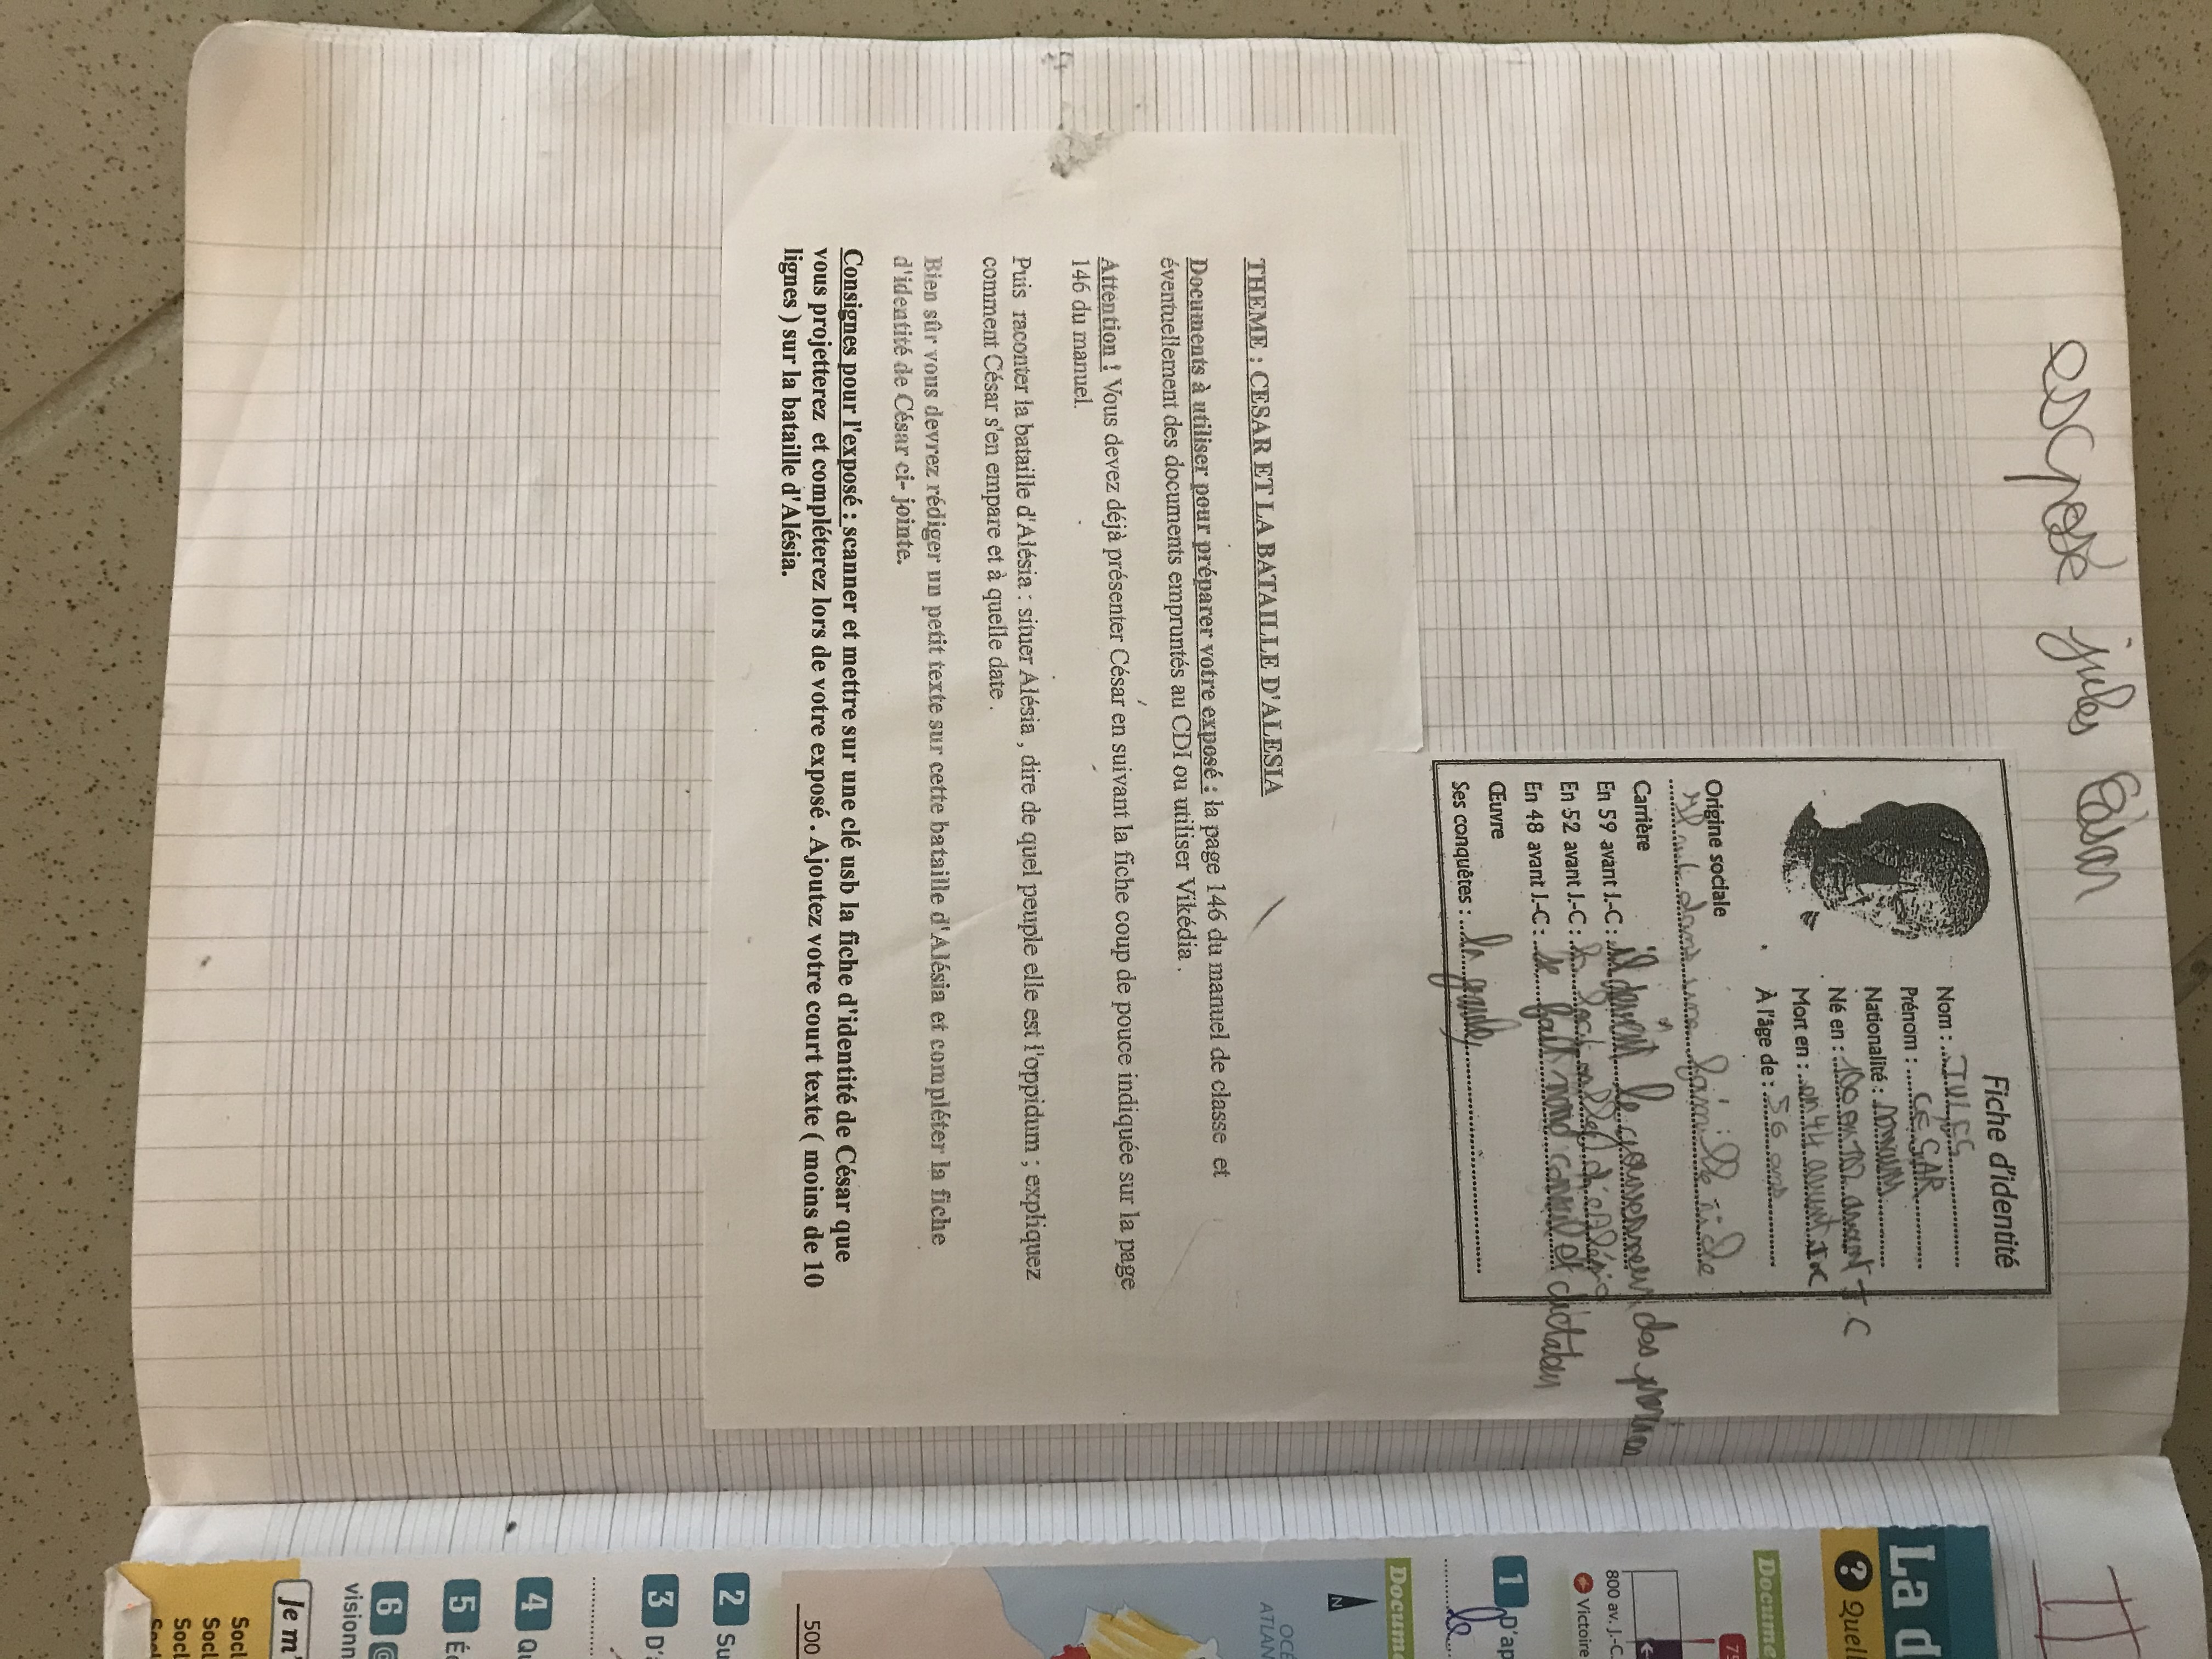 exposé jules César
Fiche d'identité
Nom : JULES
Prénom : CÉSAR
Nationalité : romain
Né en : 100 ou 102 avant J.C
Mort en : en 44 avant J.C
À l'âge de : 56 ans
Origine sociale
Il naît dans une famille
Carrière
En 59 avant J.-C : il devient le gouverneur des
En 52 avant J.-C :
En 48 avant J.-C : se fait consul et dictateur
Œuvre
Ses conquêtes : la gaule
THEME : CESAR ET LA BATAILLE D'ALESIA
Documents à utiliser pour préparer votre exposé : la page 146 du manuel de classe et
éventuellement des documents empruntés au CDI ou utiliser Vikédia .
Attention ! Vous devez déjà présenter César en suivant la fiche coup de pouce indiquée sur la page
146 du manuel.
Puis raconter la bataille d'Alésia : situer Alésia , dire de quel peuple elle est l'oppidum ; expliquez
comment César s'en empare et à quelle date .
Bien sûr vous devrez rédiger un petit texte sur cette bataille d'Alésia et compléter la fiche
d'identité de César ci- jointe.
Consignes pour l'exposé : scanner et mettre sur une clé usb la fiche d'identité de César que
vous projetterez et compléterez lors de votre exposé . Ajoutez votre court texte ( moins de 10
lignes ) sur la bataille d'Alésia.
II
La d
? Quell
Docume
800 av. J.-C.
Victoire
1 D'ap
le
Docume
N
OCÉ
ATLAN
500
2 Su
3 D'a
4 Qu
5 Éc
6 @
visionn
Je m'
Socl
Socl
Socl
Socl